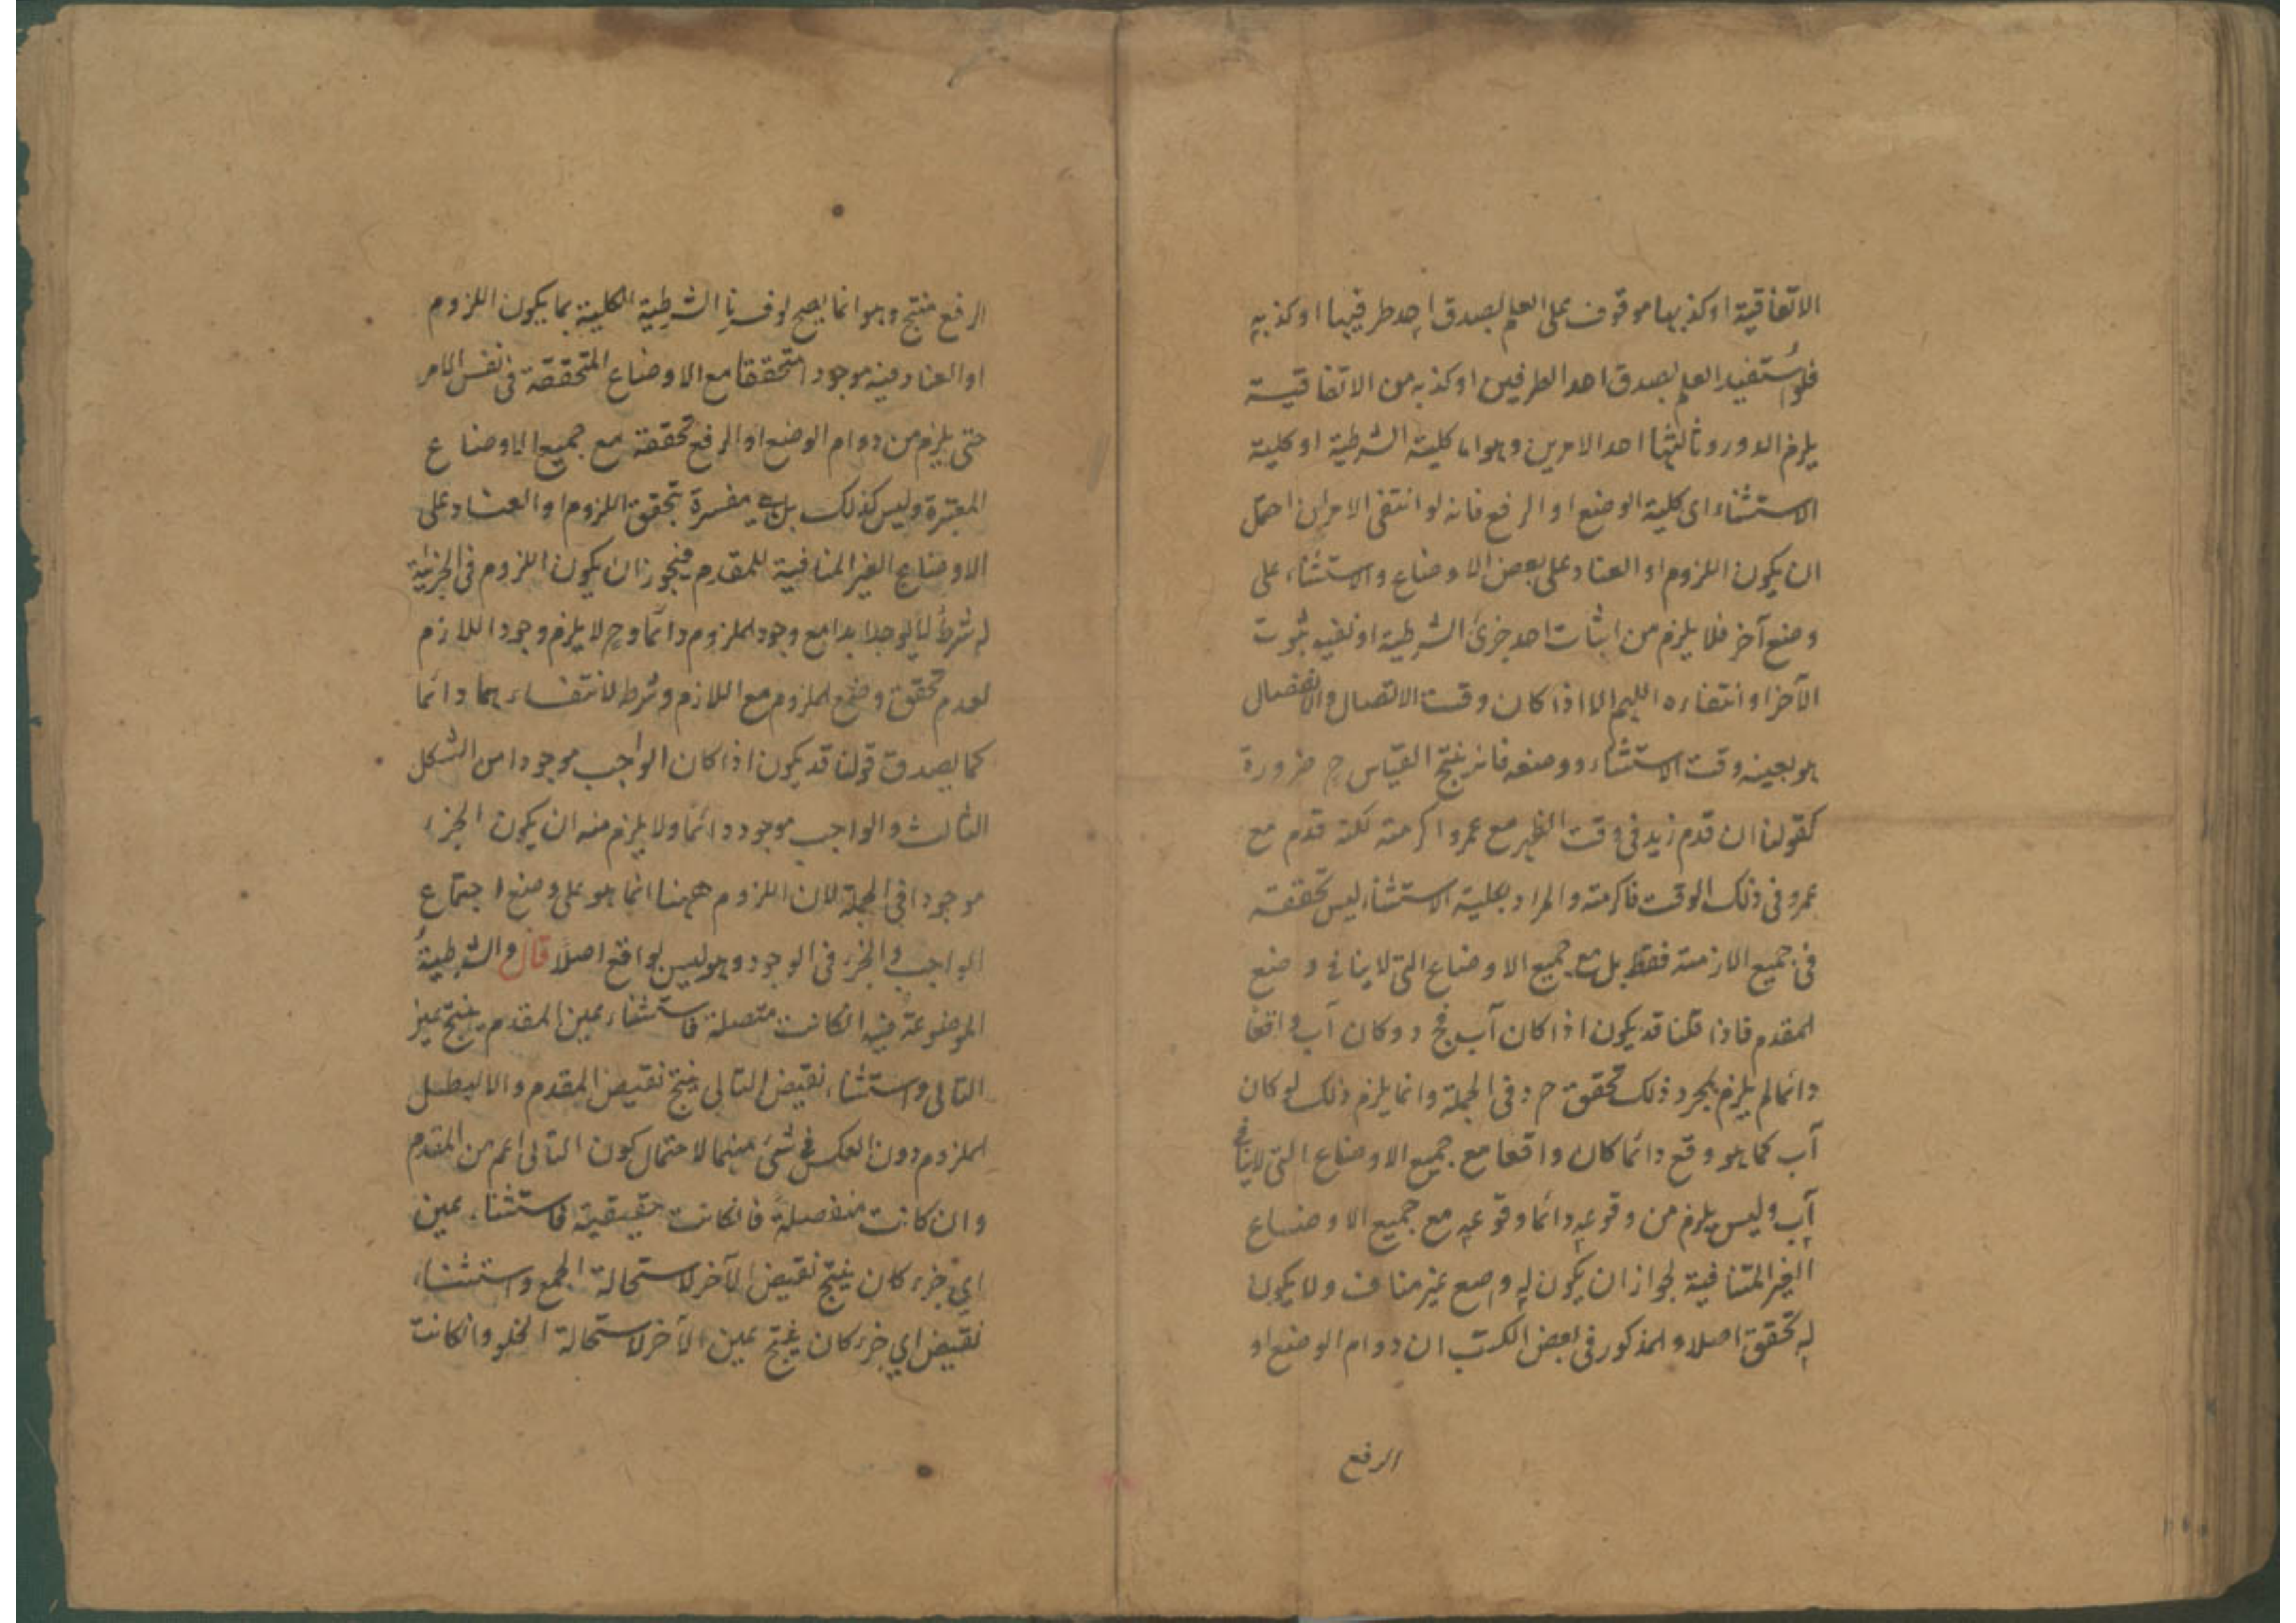 الاتفاقية او كذبها موقوف على العلم بصدق احد طرفيها او كذبه
فلو استفيد العلم بصدق احد الطرفين او كذبه من الاتفاقية
يلزم الدور وثالثها احد الامرين وهو اما كلية الشرطية او كلية
الاستثناء اى كلية الوضع او الرفع فانه لو انتفى الامران احتمل
ان يكون اللزوم او العناد على بعض الاوضاع والاستثناء على
وضع آخر فلا يلزم من اثبات احد جزئ الشرطية او نفيه ثبوت
الآخر او انتفاءه اللهم الا اذا كان وقت الاتصال والانفصال
هو بعينه وقت الاستثناء ووضعه فانه ينتج القياس ح ضرورة
كقولنا ان قدم زيد فى وقت الظهر مع عمرو اكرمته لكنه قدم مع
عمرو فى ذلك الوقت فاكرمته والمراد بكلية الاستثناء ليس تحققه
فى جميع الازمنة فقط بل مع جميع الاوضاع التى لا ينافى وضع
المقدم فاذا قلنا قد يكون اذا كان آب فج د وكان آب واقعا
دائما لم يلزم بمجرد ذلك تحقق ج د فى الجملة وانما يلزم ذلك لو كان
آب كما هو وقع دائما كان واقعا مع جميع الاوضاع التى لا ينافى
آب وليس يلزم من وقوعه دائما وقوعه مع جميع الاوضاع
الغير المتنافية لجواز ان يكون له وضع غير مناف ولا يكون
له تحقق اصلا والمذكور فى بعض الكتب ان دوام الوضع او
الرفع
الرفع منتج وهو انما يصح لو فسرنا الشرطية الكلية بما يكون اللزوم
او العناد فيه موجودا متحققا مع الاوضاع المتحققة فى نفس الامر
حتى يلزم من دوام الوضع او الرفع تحققه مع جميع الاوضاع
المعتبرة وليس كذلك بل هى مفسرة بتحقق اللزوم او العناد على
الاوضاع الغير المنافية للمقدم فيجوز ان يكون اللزوم فى الجزئية
له شرط لا يوجد ابدا مع وجود الملزوم دائما وح لا يلزم وجود اللازم
لعدم تحقق وضع الملزوم مع اللازم وشرط لانتفاءهما دائما
كما يصدق قولنا قد يكون اذا كان الواجب موجودا من الشكل
الثالث والواجب موجود دائما ولا يلزم منه ان يكون الجزء
موجودا فى الجملة لان اللزوم ههنا انما هو على وضع اجتماع
الواجب والجزء فى الوجود وهو ليس بواقع اصلا قال والشرطية
الموضوعة فيه انكانت متصلة فاستثناء عين المقدم ينتج عين
التالى واستثناء نقيض التالى ينتج نقيض المقدم والا لبطل
الملزوم دون العكس فى شئ منهما لاحتمال كون التالى اعم من المقدم
وان كانت منفصلة فانكانت حقيقية فاستثناء عين
اي جزء كان ينتج نقيض الآخر لاستحالة الجمع واستثناء
نقيض اي جزء كان ينتج عين الآخر لاستحالة الخلو وانكانت